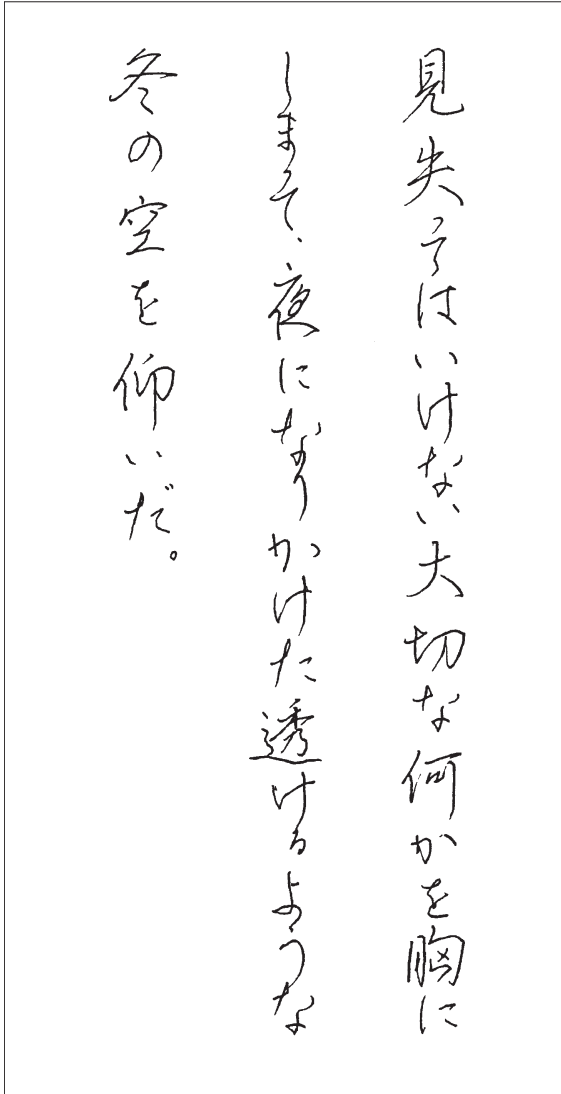 見失ってはいけない大切な何かを胸に
しまって、夜になりかけた透けるような
冬の空を仰いだ。